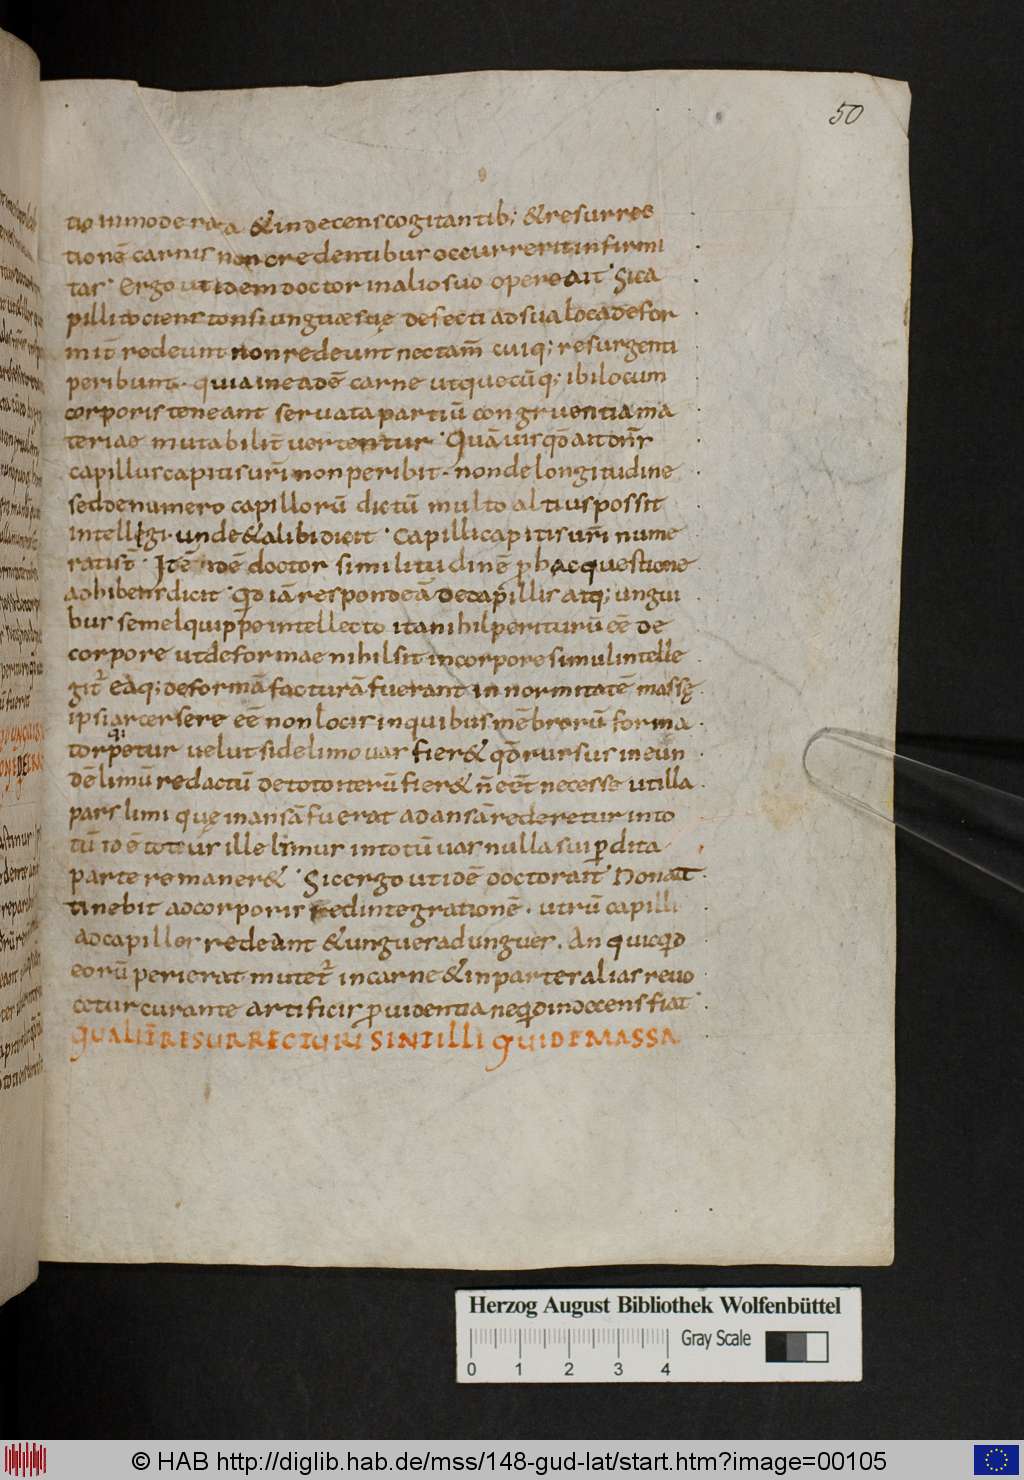 50
tio inmoderata & indecens cogitantib; & resurrec
tionē carnis non credentibus occurrerit infirmi
tas· Ergo ut idem doctor in alio suo opere ait· Si ca
pilli tociens tonsi ungues uę desecti ad sua loca defor
mit̄ redeunt non redeunt nec tam̄ cuiq; resurgenti
peribunt· quia in eadē carne ut quecūq; ibi locum
corporis teneant servata partiū congruentia ma
teriae mutabilit̄ vertentur· Quāvis qd̄ ait dn̄s
capillus capitis ur̄i non peribit· non de longitudine
sed de numero capillorū dictū multo altius possit
intellegi unde & alibi dicit· Capilli capitis ur̄i nume
rati st̄· Itē idē doctor similitudinē p hac questione
adhibens dicit· Qd iā respondeā de capillis atq; ungui
bus semel quippe intellecto ita nihil periturū eē de
corpore ut deformae nihil sit in corpore simul intelle
git̄ ea q; deformā facturā fuerant in normitatē massę
ipsi arcersere eē non locis in quibus mēbrorū forma
qi
torpetur velut si de limo vas fier& qd̄ rursus in eun
dē limū redactū de toto iterū fier& n̄ eēt necesse ut illa
pars limi quę in ansā fuerat ad ansā rederetur in to
tū id ē totus ille limus in totū vas nulla sui pdita
parte remaner&· Sic ergo ut idē doctor ait· Non at
tinebit ad corporis redintegrationē· utrū capilli
ad capillos redeant & ungues ad ungues. An quicqid
eorū perierat mutet̄ in carne & in partes alias revo
cetur curante artificis pvidentia neqid indecens fiat·
QUALIT̄ RESURRECTURI SINT ILLI QUI DE MASSA
Herzog August Bibliothek Wolfenbüttel
Gray Scale
0 1 2 3 4
© HAB http://diglib.hab.de/mss/148-gud-lat/start.htm?image=00105